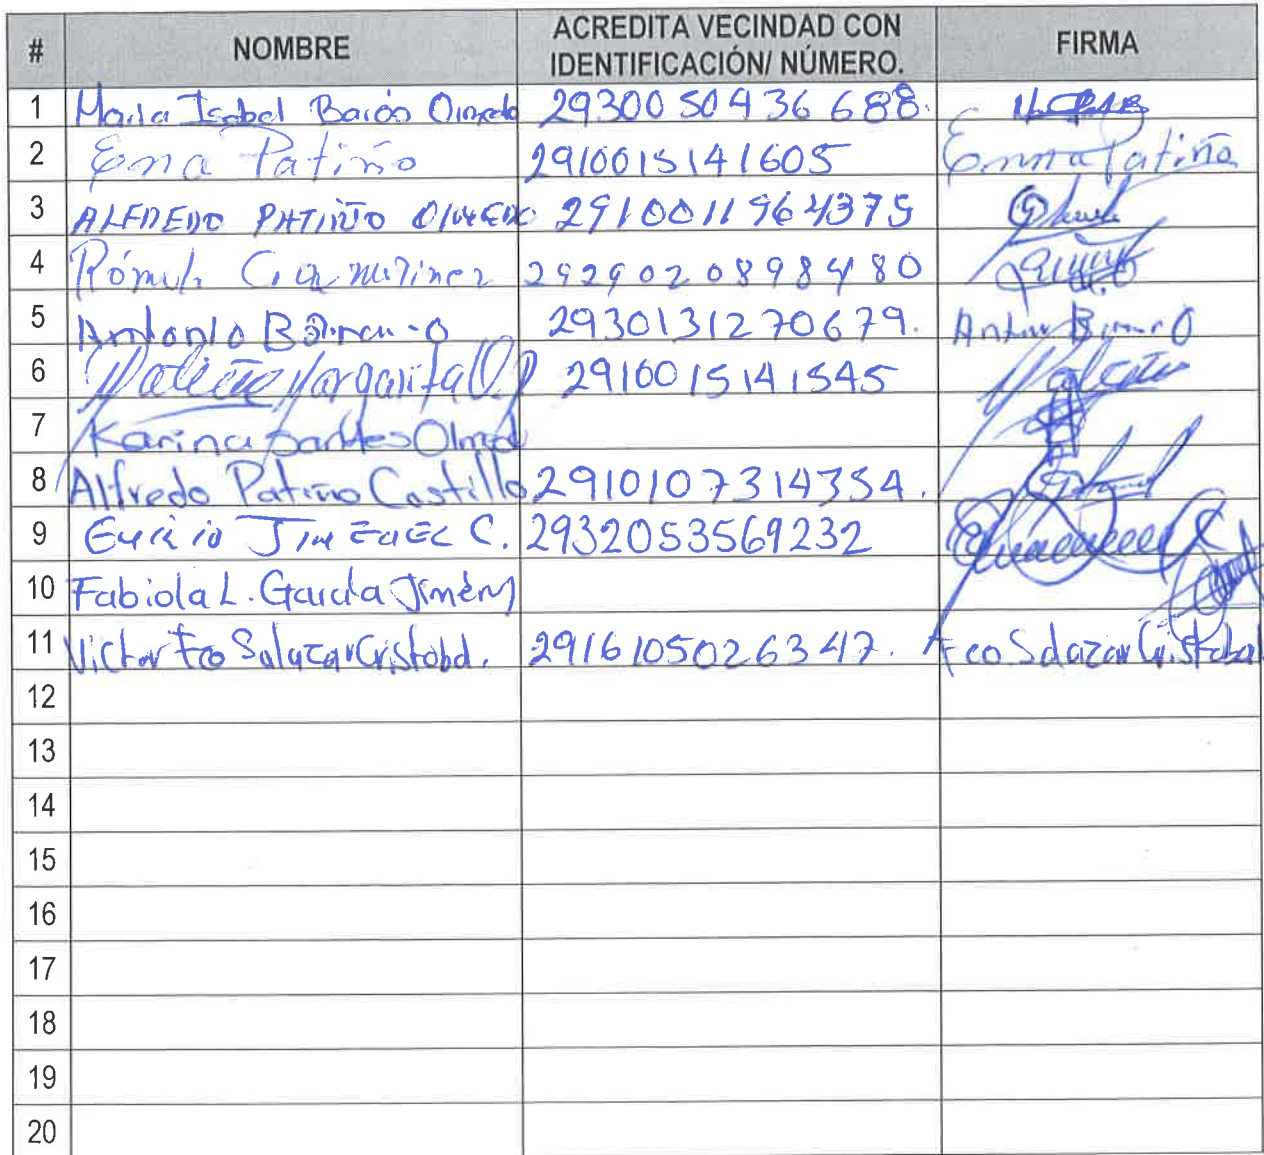 # NOMBRE ACREDITA VECINDAD CON IDENTIFICACIÓN/ NÚMERO. FIRMA
1 Maria Isabel Barón Olmedo 2930050436688.
2 Ema Patiño 2910015141605 Emma Patiño
3 ALFREDO PATIÑO OLMEDO 2910011964375
4 Rómulo 2929020898480
5 Antonio 2930131270679.
6 Patiño Margarita O. 2910015141545
7 Karina Olmed
8 Alfredo Patiño Castillo 2910107314354.
9 JIMENEZ C. 2932053569232
10 Fabiola L. García Jiménez
11 Victor Fco Salazar Cristobal. 2916105026347. Fco Salazar Cristobal
12
13
14
15
16
17
18
19
20